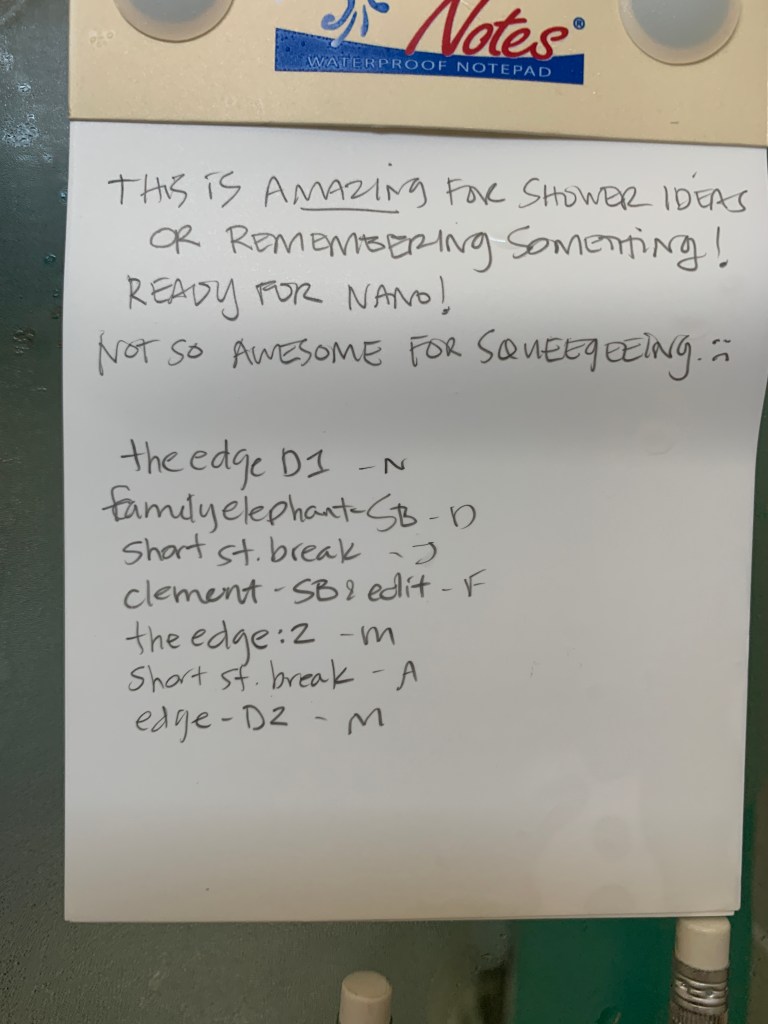 Notes®
WATERPROOF NOTEPAD
THIS IS AMAZING FOR SHOWER IDEAS
OR REMEMBERING SOMETHING!
READY FOR NANO!
NOT SO AWESOME FOR SQUEEGEEING. :(
the edge D1 - N
family elephant - SB - D
Short st. break - J
clement - SB & edit - F
the edge: 2 - m
Short st. break - A
edge - D2 - M